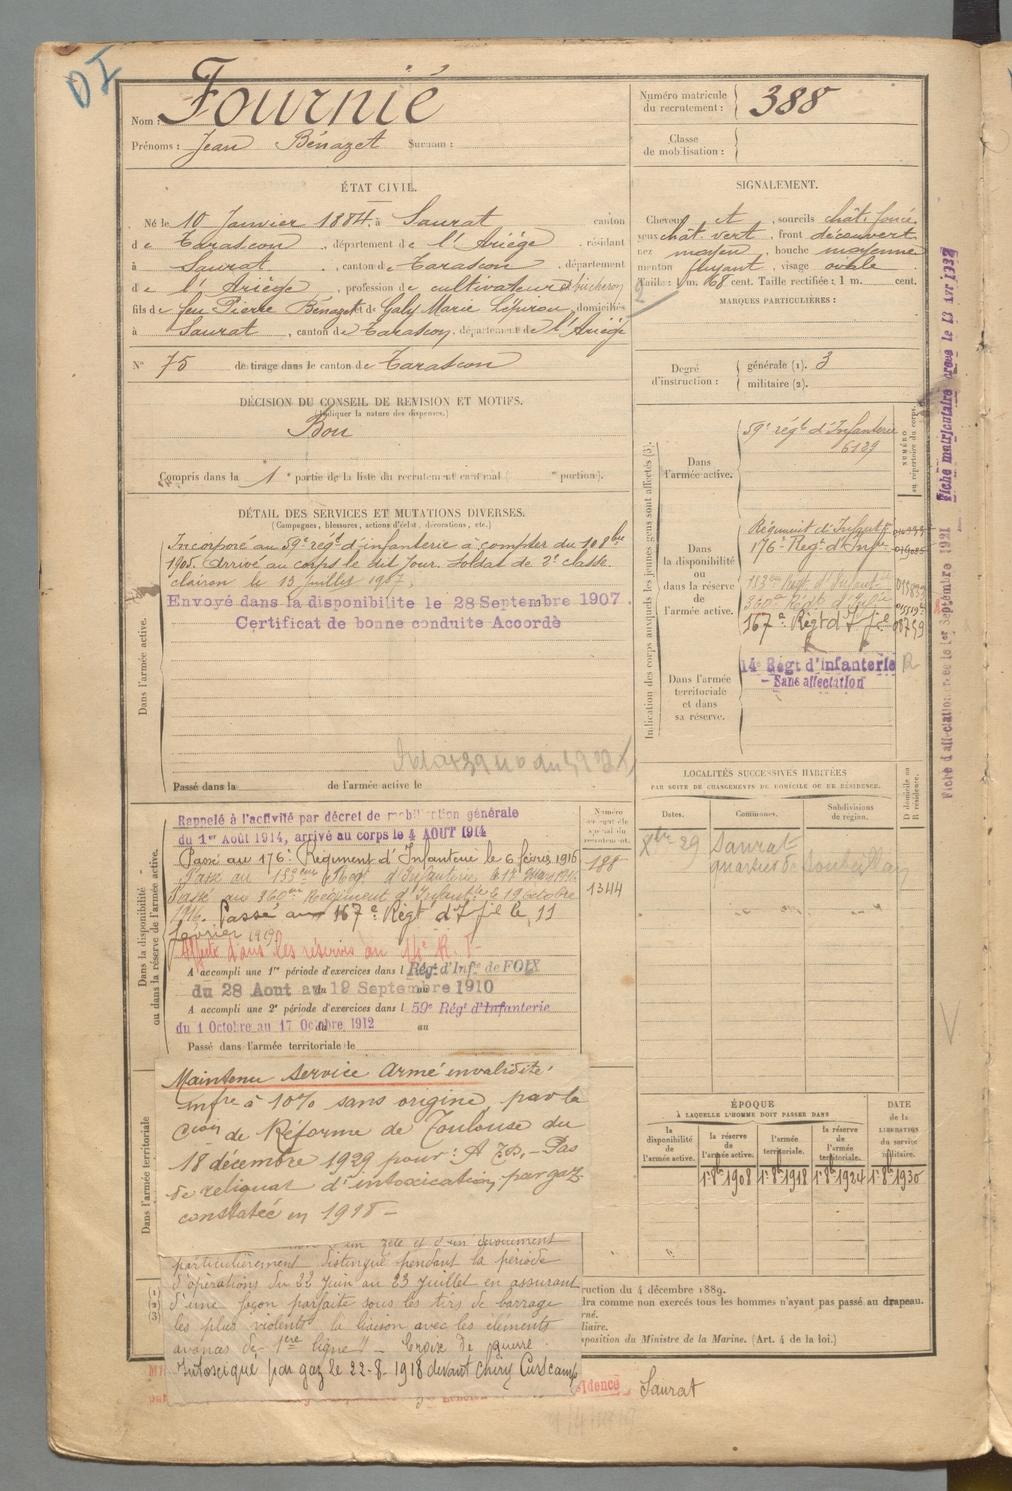 Nom : Fournié
Prénoms : Jean Bénazet Surnom :
Numéro matricule du recrutement : 388
Classe de mobilisation :
ÉTAT CIVIL.
Né le 10 Janvier 1884, à Saurat canton
de Tarascon, département de l'Ariège, résidant
à Saurat, canton de Tarascon, département
de l'Ariège, profession de cultivateur et bûcheron
fils de feu Pierre Bénazet et de Galy Marie domiciliés
à Saurat, canton de Tarascon, département de l'Ariège
N° 75 de tirage dans le canton de Tarascon
SIGNALEMENT.
Cheveux et, sourcils chât. foncé
yeux chât. vert, front découvert
nez moyen, bouche moyenne
menton fuyant, visage ovale
Taille : 1 m. 68 cent. Taille rectifiée : 1 m. cent.
MARQUES PARTICULIÈRES :
Degré d'instruction : générale (1). 3
militaire (2).
DÉCISION DU CONSEIL DE REVISION ET MOTIFS.
(Indiquer la nature des dispenses.)
Bon
Compris dans la 1e partie de la liste du recrutement cantonal ( e portion).
DÉTAIL DES SERVICES ET MUTATIONS DIVERSES.
(Campagnes, blessures, actions d'éclat, décorations, etc.)
Dans l'armée active.
Incorporé au 59e régt d'infanterie à compter du 10 8bre
1905. Arrivé au corps le dit jour. Soldat de 2e classe.
clairon le 13 Juillet 1907.
Envoyé dans la disponibilité le 28 Septembre 1907.
Certificat de bonne conduite Accordé
Passé dans la de l'armée active le
Indication des corps auxquels les jeunes gens sont affectés (3).
NUMÉRO au répertoire du corps.
Dans l'armée active.
59e régt d'Infanterie
6129
Dans la disponibilité ou dans la réserve de l'armée active.
Régiment d'Infant.
176e Régt d'Infie
360e Régt d'Infie
167e Régt d'I
Dans l'armée territoriale et dans sa réserve.
14e Régt d'infanterie R
- Sans affectation
Fiche matriculaire créée le 13 AVR 1932
Fiche d'affectation créée le 1er Septembre 1921
LOCALITÉS SUCCESSIVES HABITÉES
PAR SUITE DE CHANGEMENTS DE DOMICILE OU DE RÉSIDENCE.
Dates. Communes. Subdivisions de région. D domicile ou R résidence.
29 Saurat
quartier de
Dans la disponibilité ou dans la réserve de l'armée active.
Numéro
188
1344
Rappelé à l'activité par décret de mobilisation générale
du 1er Août 1914, arrivé au corps le 4 AOUT 1914
Passé au 176e Régiment d'Infanterie le 6 février 1916
Passé au 360eme Régiment d'Infantie le 19 octobre
1916. Passé au 167e Régt d'I le 11
février 1919
Affecté dans les réserves au 14e R. I-
A accompli une 1re période d'exercices dans l Régt d'Infie de FOIX
du 28 Aout au 19 Septembre 1910
A accompli une 2e période d'exercices dans l 59e Régt d'Infanterie
du 1 Octobre au 17 Octobre 1912 au
Passé dans l'armée territoriale le
Dans l'armée territoriale
Maintenu service armé invalidité
infre à 10% sans origine par la
Cion de Réforme de Toulouse du
18 décembre 1929 pour : Pas
de reliquat d'intoxication par gaz
constatée en 1918 -
un zèle et d'un dévouement
particulièrement distingué pendant la période
d'opérations du 22 Juin au 23 Juillet en assurant
d'une façon parfaite sous les tirs de barrage
les plus violents la liaison avec les éléments
avancés de 1ère ligne" - Croix de guerre
Intoxiqué par gaz le 22-8-1918 devant Chiry
ÉPOQUE
À LAQUELLE L'HOMME DOIT PASSER DANS
DATE de la LIBÉRATION du service militaire.
la disponibilité de l'armée active. la réserve de l'armée active. l'armée territoriale. la réserve de l'armée territoriale.
1er 8bre 1908 1er 8bre 1918 1er 8bre 1924 1er 8bre 1930
ruction du 4 décembre 1889.
dra comme non exercés tous les hommes n'ayant pas passé au drapeau.
rné.
liaire.
sposition du Ministre de la Marine. (Art. 4 de la loi.)
sidence Saurat